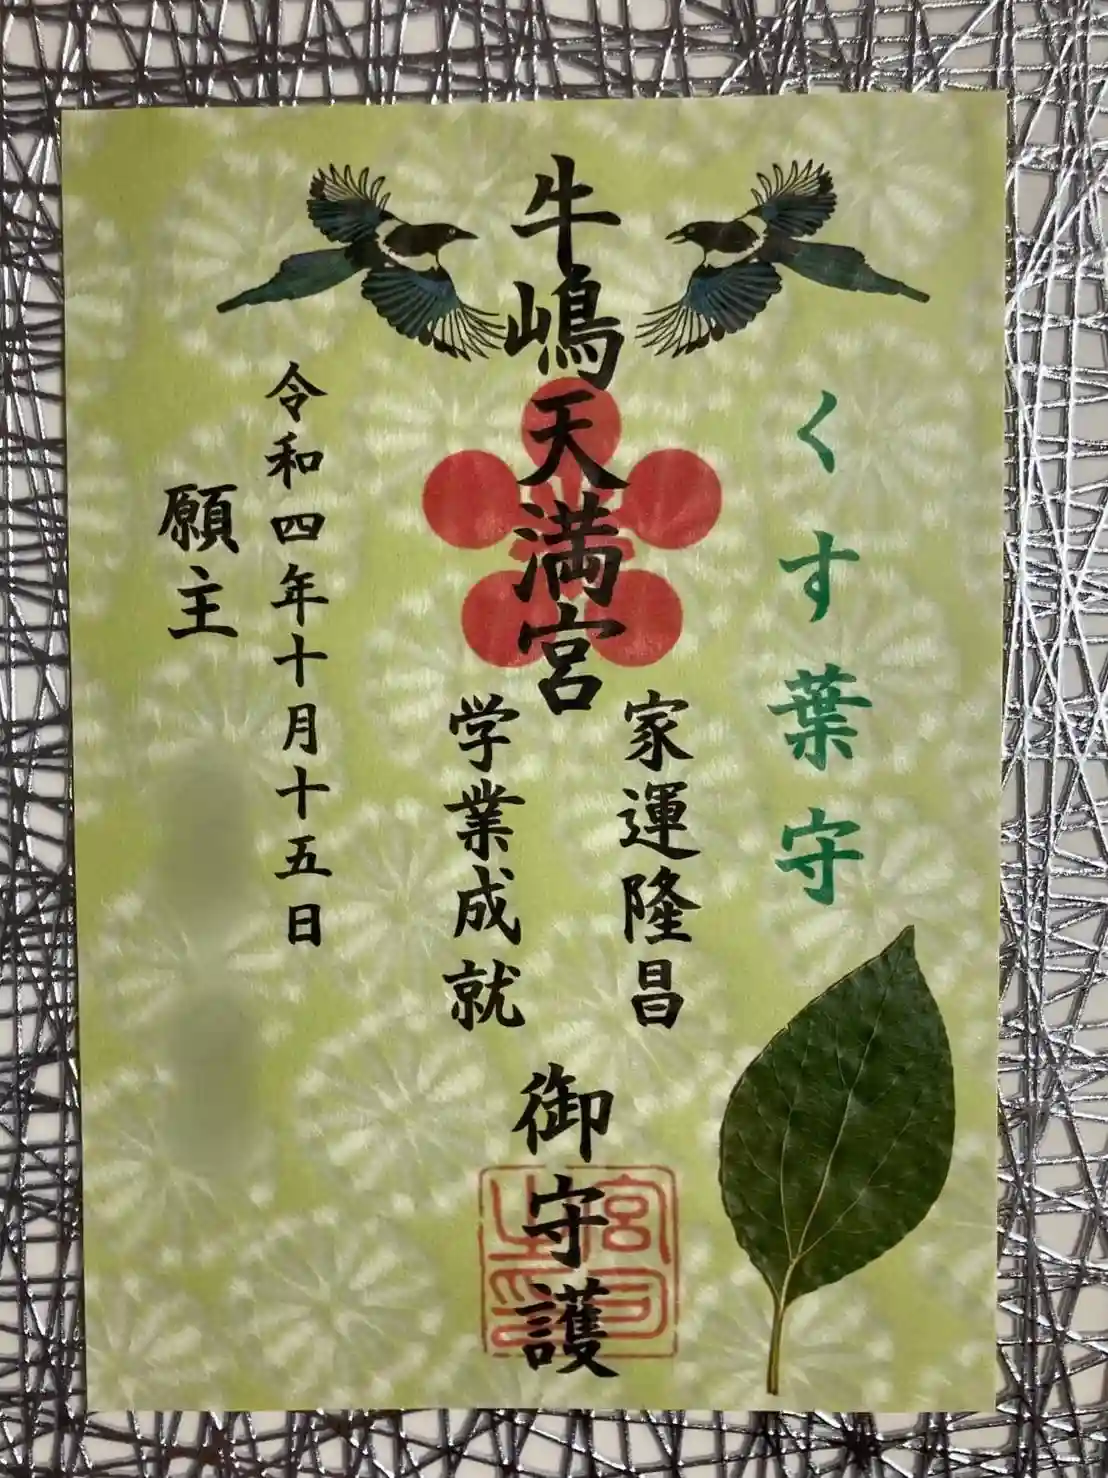 くす葉守
牛嶋天満宮
家運隆昌
学業成就
御守護
宮司之印
令和四年十月十五日
願主